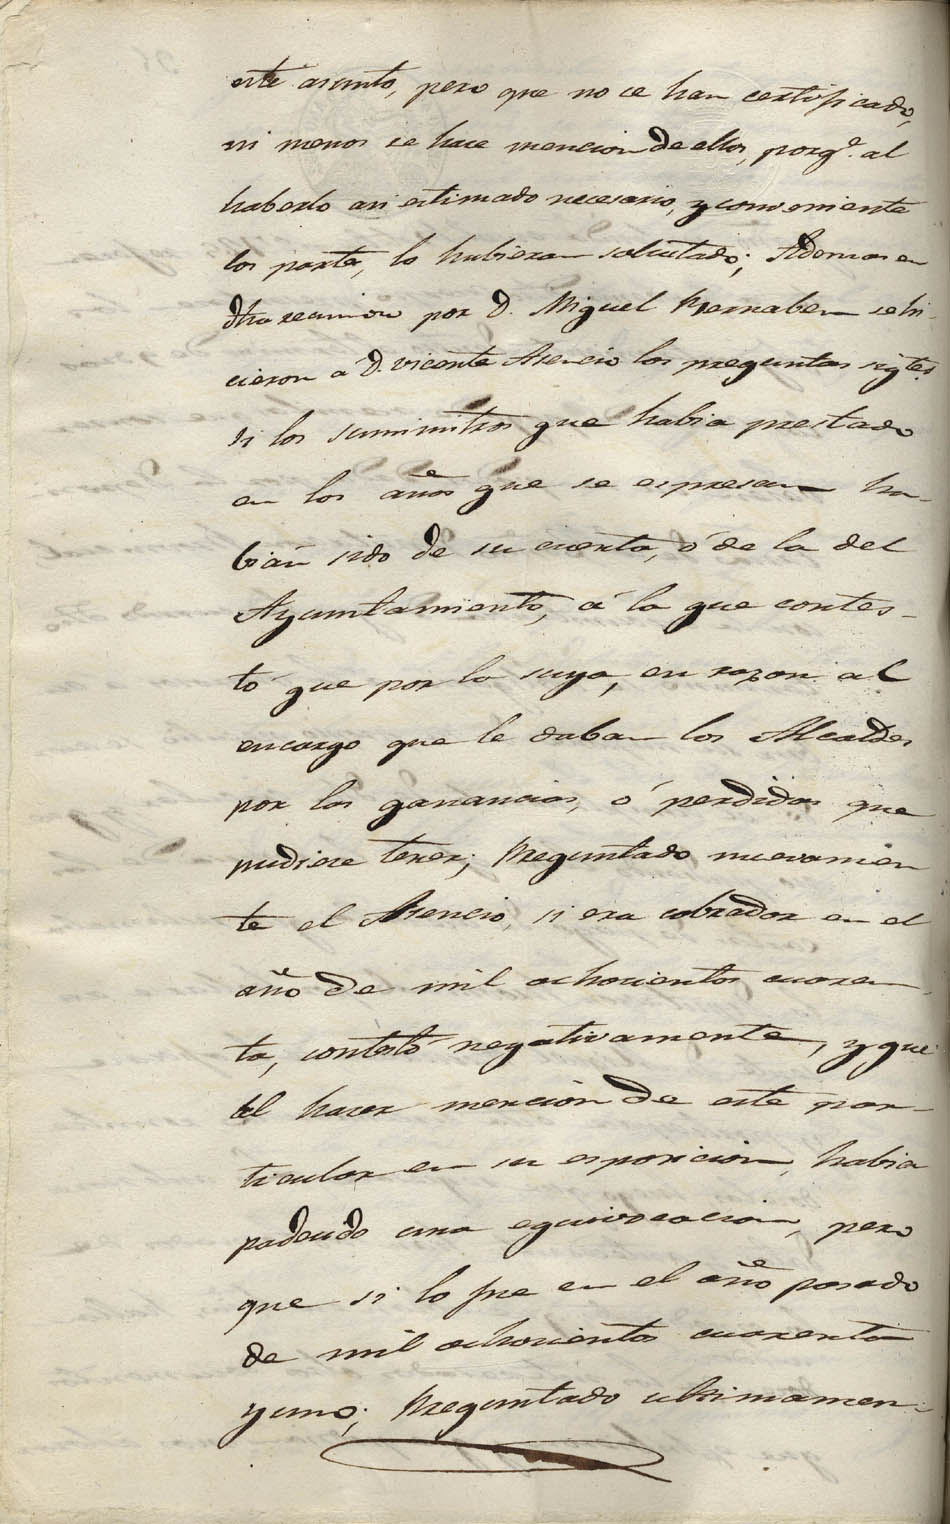 este asunto, pero que no ce han certificado,
ni menos se hace mencion de ellos, porq.e al
haberlo asi estimado necesario, y conveniente
las partes, lo hubieran solicitado; Ademas en
dha reunion por D. Miguel Bernabeu se hi-
cieron a D. Vicente Asencio las preguntas sigtes
si los suministros que habia prestado
en los años que se espresan ha-
bian sido de su cuenta, ó de la del
Ayuntamiento, á la que contes-
tó que por la suya, en razon al
encargo que le daban los Alcaldes
por las ganancias, ó perdidas que
pudiese tener; Preguntado nuevamen
te el Asencio, si era cobrador en el
año de mil ochocientos cuaren-
ta, contestó negativamente, y que
al hacer mencion de este par-
ticular en su esposicion, habia
padecido una equivocacion, pero
que si lo fue en el año pasado
de mil ochocientos cuarenta
y uno; Preguntado ultimamen-